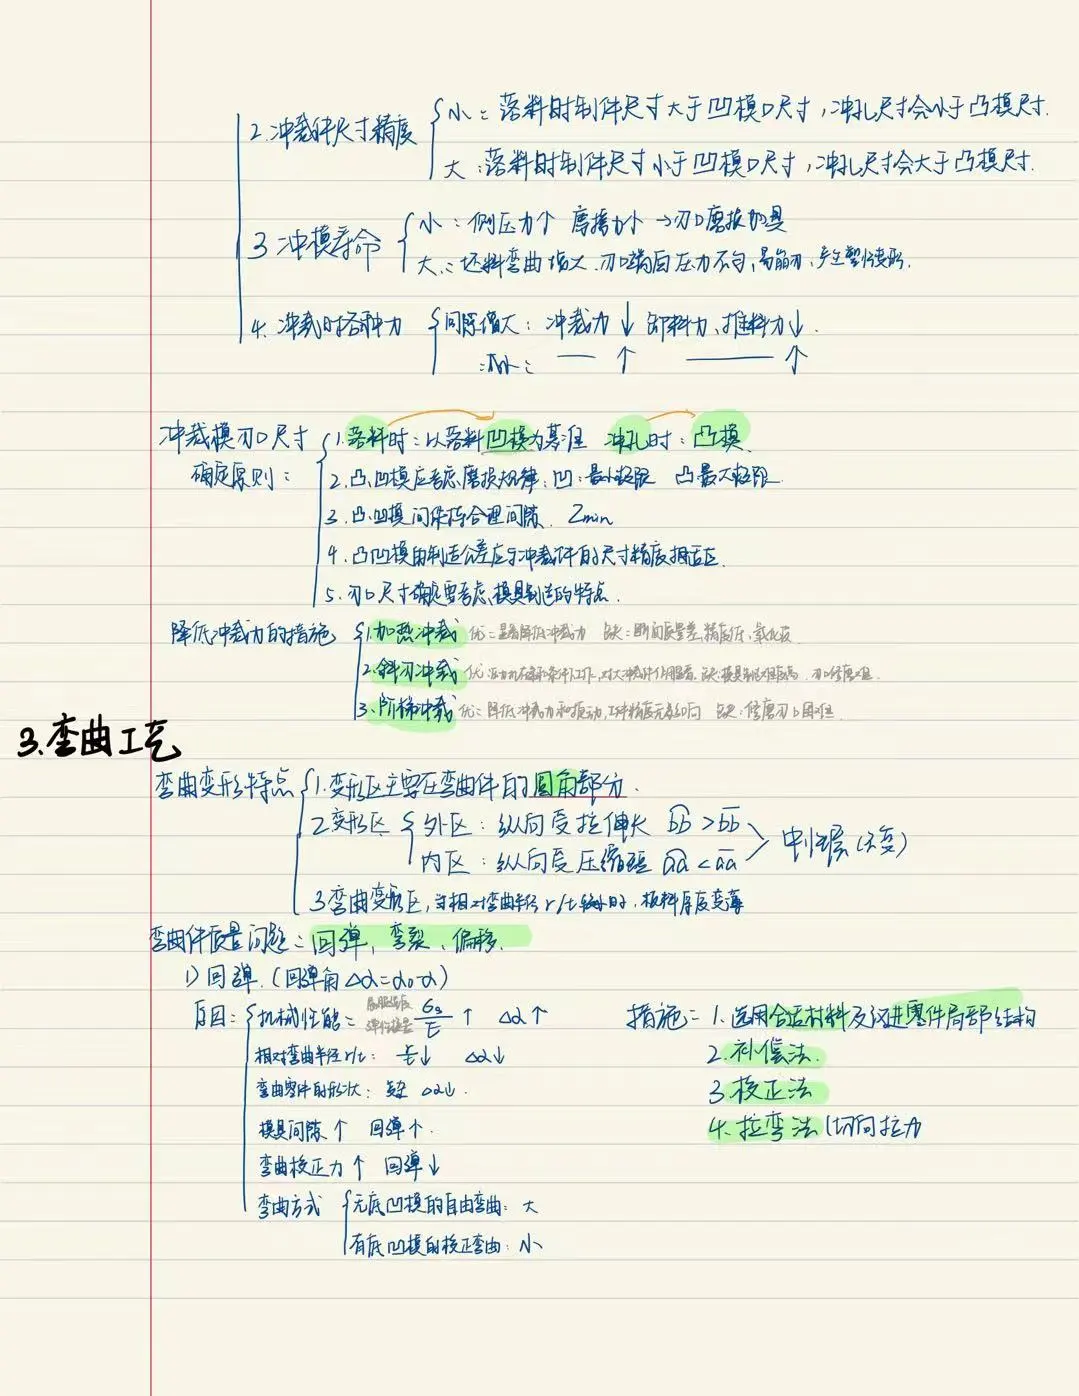 2.冲裁件尺寸精度
小：落料时制件尺寸大于凹模口尺寸，冲孔尺寸会小于凸模尺寸.
大：落料时制件尺寸小于凹模口尺寸，冲孔尺寸会大于凸模尺寸.
3 冲模寿命
小：侧压力个 摩擦力个 →刃口磨损加具
大：坯料弯曲增大.刃口端面压力不匀,易崩刃,产生塑性变形.
4. 冲裁时各种力
间隙增大：冲裁力↓ 卸料力、推料力↓.
减小： — ↑ —— ↑
冲裁模刃口尺寸
确定原则：
1.落料时：以落料凹模为基准 冲孔时：凸模.
2.凸.凹模应考虑磨损规律：凹：最小极限 凸最大极限
3.凸.凹模间保持合理间隙. Zmin
4.凸凹模的制造公差应与冲裁件的尺寸精度相适应.
5.刃口尺寸确定要考虑模具制造的特点.
降低冲裁力的措施
1.加热冲裁 优：显著降低冲裁力 缺：断面质量差,精度低,氧化皮
2.斜刃冲裁
3.阶梯冲裁 优：降低冲裁力和振动,工件精度无影响 缺：修磨刃口困难.
3.弯曲工艺
弯曲变形特点
1.变形区主要在弯曲件的圆角部分.
2.变形区
外区：纵向受拉伸长 b͡b > b̅b̅
内区：纵向受压缩短 a͡a < a̅a̅
中性层(不变)
3弯曲变形区,当相对弯曲半径r/t较小时,板料厚度变薄
弯曲件质量问题：回弹,弯裂、偏移.
1)回弹.(回弹角Δα=α₀-α)
原因：
机械性能： 屈服强度 弹性模量 σs/E ↑ Δα↑
相对弯曲半径r/t： r/t↓ Δα↓
弯曲零件的形状： Δα↓.
模具间隙↑ 回弹个.
弯曲校正力↑ 回弹↓
弯曲方式
无底凹模的自由弯曲：大
有底凹模的校正弯曲：小
措施：1.选用合适材料及改进零件局部结构
2.补偿法
3.校正法
4.拉弯法(切向拉力